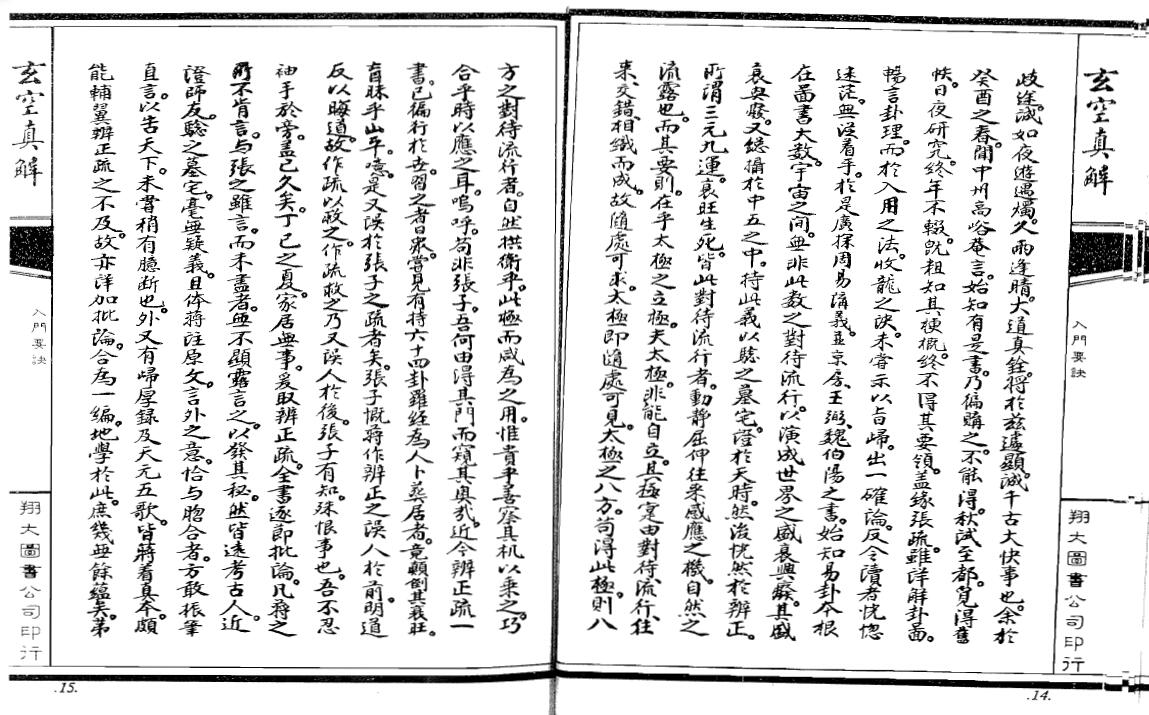 玄空真解
入門要訣
翔大圖書公司印行
歧途。誠如夜遊遇燭。久雨逢晴。大道真銓。將於茲遽顯。誠千古大快事也。余於
癸酉之春。聞中州高峪菴言。始知有是書。乃偏購之。不能得。秋試至都。覓得舊
帙。日夜研究。終年不輟。旣粗知其梗概。終不得其要領。盖緣張疏。雖详解卦圖。
暢言卦理。而於入用之法。收龍之決。未嘗示以旨歸。出一確論。反令讀者恍惚
迷茫。無從着手。於是廣探周易講義。並京房、王弼、魏伯陽之書。始知易卦本根
在圖書大数。宇宙之间。無非此数之對待流行。以演成世界之盛衰興廢。其盛
衰與廢。又總攝於中五之中。持此義以騐之墓宅。證於天時。然後恍然於辨正。
所谓三元九運。衰旺生死。皆此對待流行者。動静屈伸往来感應之機。自然之
流露也。而其要則。在乎太極之立極。夫太極非能自立。其極寔由對待流行。往
来交錯。相織而成。故随處可求。太極即随處可見。太極之八方。苟得此極。則八
.14.
方之對待流行者。自然拱衛乎。此極而咸為之用。惟贵乎善察其机以乘之。巧
合乎時以應之耳。嗚呼。苟非張子。吾何由得其門而窺其奥哉。近今辨正疏一
書。已徧行於世。習之者日衆。嘗見有持六十四卦羅经為人卜葬居者。竟顛倒其衰旺。
盲昧乎山午。噫。是又误於張子之疏者矣。張子慨蔣作辨正之误人於前。明道
反以晦道。故作疏以救之。作疏救之乃又误人於後。張子有知。殊恨事也。吾不忍
袖手於旁。盖已久矣。丁已之夏。家居無事。爰取辨正疏。全書逐即批論。凡蔣之
所不肯言。与張之雖言。而未盡者。無不顯露言之。以發其秘。然皆遠考古人。近
證師友。騐之墓宅。毫無疑義。且侔蒋注原文。言外之意。恰与脗合者。方敢振筆
直言。以告天下。未嘗稍有臆断也。外又有歸厚録及天元五歌。皆蒋着真本。頗
能輔翼辨正疏之不及。故亦详加批論。合為一编。地學於此。庶幾無餘蕴矣。第
玄空真解
入門要訣
翔大圖書公司印行
.15.